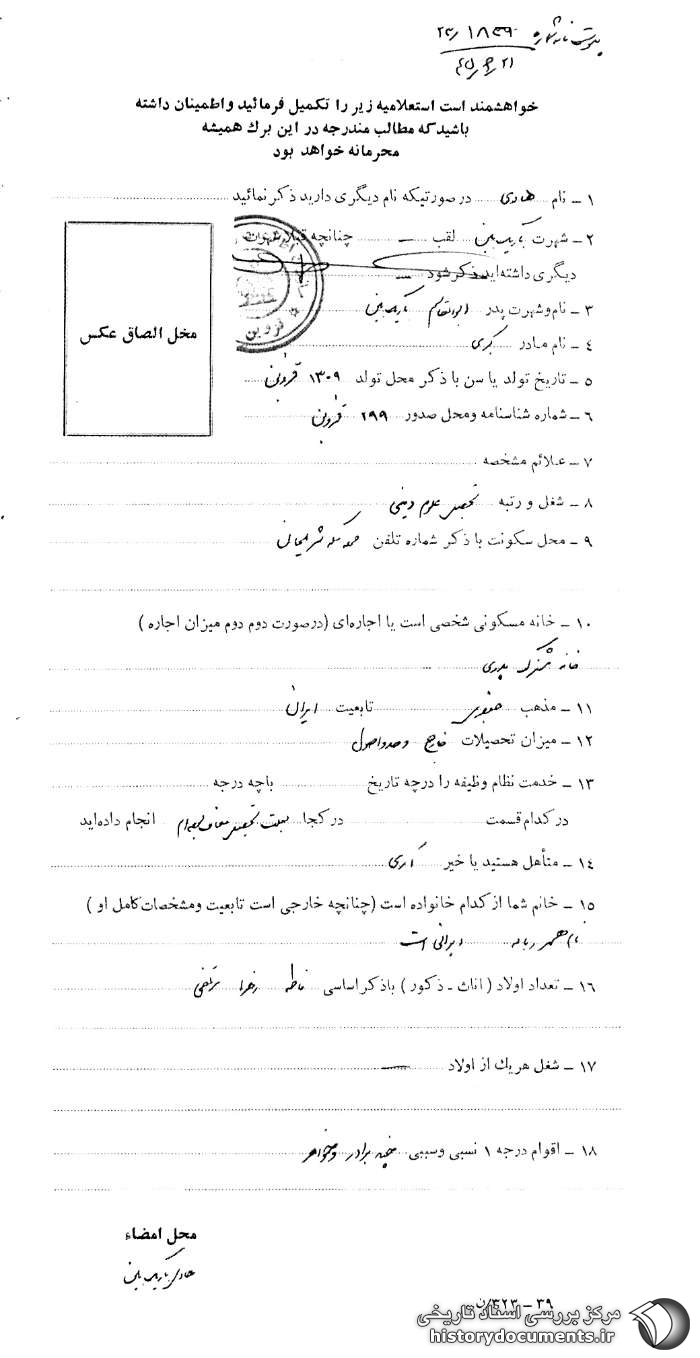 پیوست نامه شماره ۱۸۳۹۰/۲۳
۲۱/۹/۴۵
خواهشمند است استعلامیه زیر را تکمیل فرمائید واطمینان داشته
باشیدکه مطالب مندرجه در این برك همیشه
محرمانه خواهد بود
۱ ـ نام هادی در صورتیکه نام دیگری دارید ذکر نمائید
۲ ـ شهرت باریک‌بین لقب ـ چنانچه قبلا شهرت
دیگری داشته‌اید ذکر شود ـ
قزوین
محل الصاق عکس
۳ ـ نام و شهرت پدر ابوالقاسم باریک‌بین
۴ ـ نام مادر کبری
۵ ـ تاریخ تولد یا سن با ذکر محل تولد ۱۳۰۹ قزوین
۶ ـ شماره شناسنامه ومحل صدور ۲۹۹ قزوین
۷ ـ علائم مشخصه
۸ ـ شغل و رتبه تحصیل علوم دینی
۹ ـ محل سکونت با ذکر شماره تلفن
۱۰ ـ خانه مسکونی شخصی است یا اجاره‌ای (درصورت دوم دوم میزان اجاره )
خانه مشترک پدری
۱۱ ـ مذهب جعفری تابعیت ایران
۱۲ ـ میزان تحصیلات خارج واصول
۱۳ ـ خدمت نظام وظیفه را درچه تاریخ باچه درجه
در کدام قسمت در کجا بعلت تحصیل معاف بوده‌ام انجام داده‌اید
۱۴ ـ متأهل هستید یا خیر آری
۱۵ ـ خانم شما از کدام خانواده است (چنانچه خارجی است تابعیت ومشخصات کامل او )
نام همسر ایرانی است
۱۶ ـ تعداد اولاد ( اناث ـ ذکور ) باذکر اساسی فاطمه زهرا مرتضی
۱۷ ـ شغل هریك از اولاد ـ
۱۸ ـ اقوام درجه ۱ نسبی وسببی برادر وخواهر
محل امضاء
هادی باریک‌بین
۳۹ ـ ۳۲۳/ن
مرکز بررسی اسناد تاریخی
historydocuments.ir